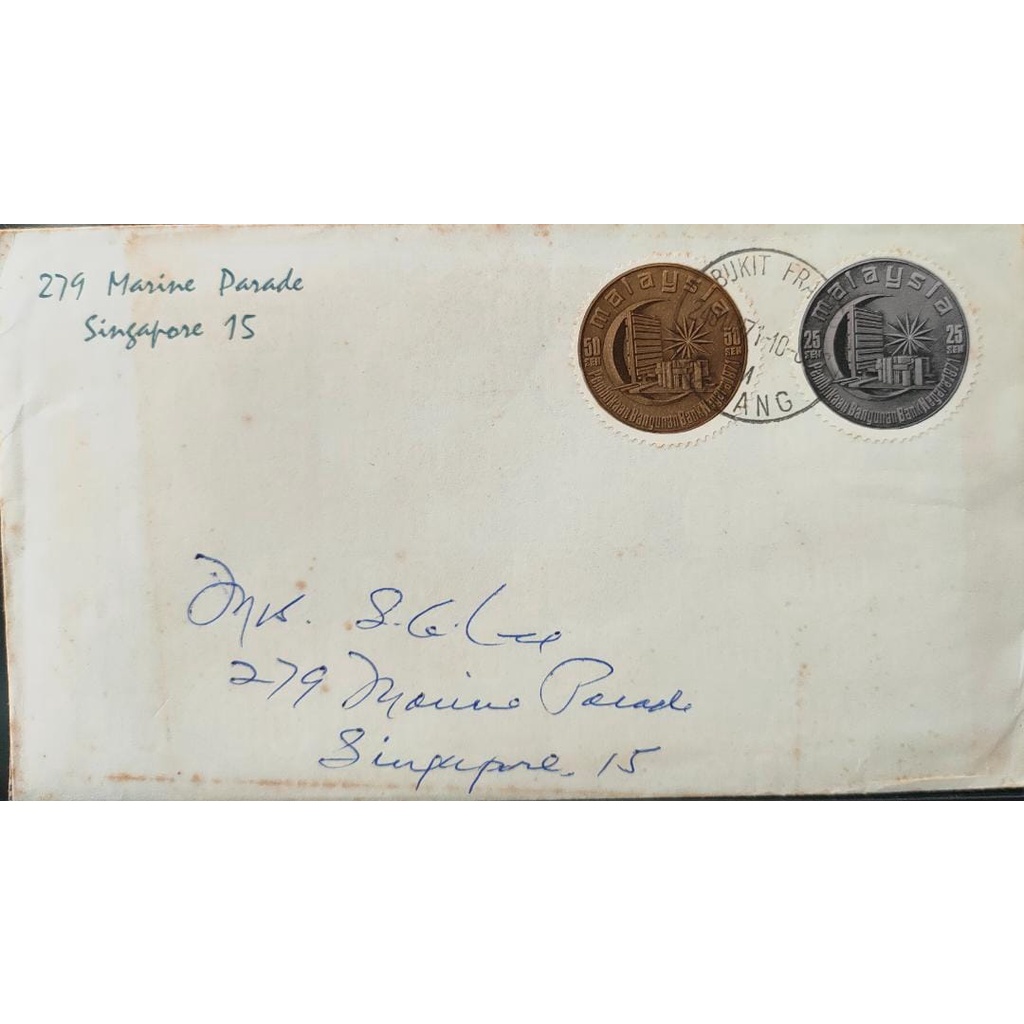 279 Marine Parade
Singapore 15
malaysia
50 SEN
50 SEN
Pembukaan Bangunan Bank Negara 1971
BUKIT FRA
71-10-
ANG
malaysia
25 SEN
25 SEN
Pembukaan Bangunan Bank Negara 1971
Mrs. S. G. Lee
279 Marine Parade
Singapore. 15